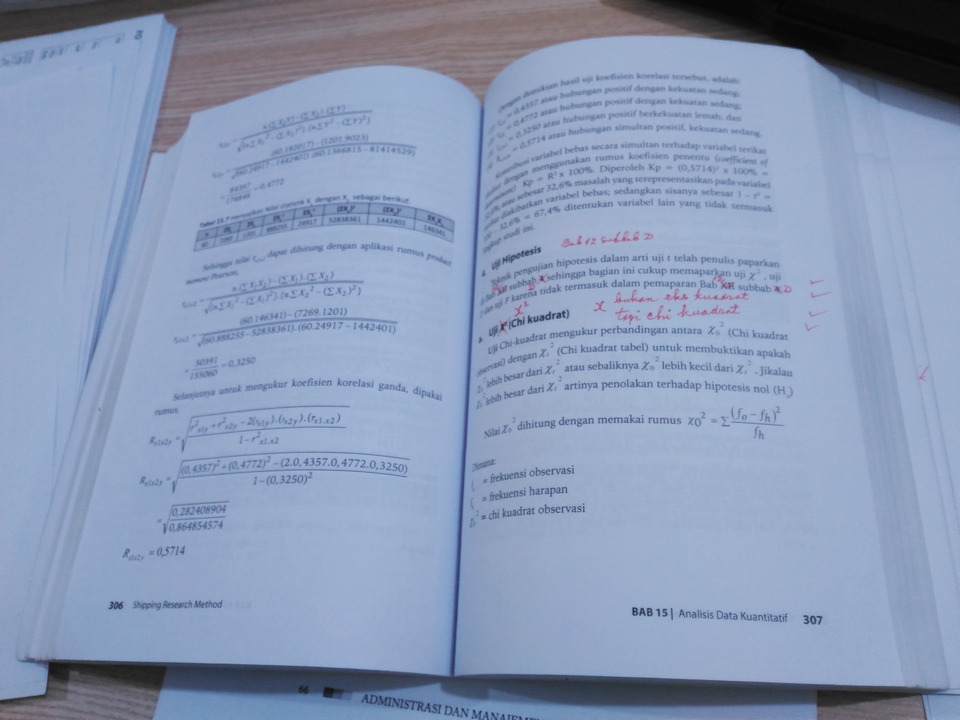 (60.182017) – (1201.9023)
√(60.24917 – 1442401).(60.1366815 – 81414529)
= 0,4772
sebagai berikut
52838361 1442401 146341
Sehingga nilai dapat dihitung dengan aplikasi rumus product
moment Pearson,
n (Σ X₁ X₂) – (Σ X₁).(Σ X₂)
√(n Σ X₁² – (Σ X₁)²).(n Σ X₂² – (Σ X₂)²)
(60.146341) – (7269.1201)
√(60.888255 – 52838361).(60.24917 – 1442401)
= 50391 / 155060 = 0,3250
Selanjutnya untuk mengukur koefisien korelasi ganda, dipakai
rumus,
Rx1x2y = √ r²x1y + r²x2y – 2(rx1y).(rx2y).(rx1.x2) / 1 – r²x1.x2
Rx1x2y = √ (0,4357)² + (0,4772)² – (2.0,4357.0,4772.0,3250) / 1 – (0,3250)²
= √ 0,282408904 / 0,864854574
Rx1x2y = 0,5714
306 Shipping Research Method
Dengan demikian hasil uji koefisien korelasi tersebut, adalah:
= 0,4357 atau hubungan positif dengan kekuatan sedang;
= 0,4772 atau hubungan positif dengan kekuatan sedang;
= 0,3250 atau hubungan positif berkekuatan lemah; dan
= 0,5714 atau hubungan simultan positif, kekuatan sedang.
Kontribusi variabel bebas secara simultan terhadap variabel terikat
dengan menggunakan rumus koefisien penentu (coefficient of
Kp = R² x 100%. Diperoleh Kp = (0,5714)² x 100% =
atau sebesar 32,6% masalah yang terepresentasikan pada variabel
diakibatkan variabel bebas; sedangkan sisanya sebesar 1 – r² =
– 32,6% = 67,4% ditentukan variabel lain yang tidak termasuk
studi ini.
Bab 12 subbab D
Uji Hipotesis
Teknik pengujian hipotesis dalam arti uji t telah penulis paparkan
subbab sehingga bagian ini cukup memaparkan uji χ², uji
dan uji F karena tidak termasuk dalam pemaparan Bab subbab D
x bukan eks kuadrat
tapi chi kuadrat
Uji (Chi kuadrat)
Uji Chi-kuadrat mengukur perbandingan antara χ₀² (Chi kuadrat
observasi) dengan χt² (Chi kuadrat tabel) untuk membuktikan apakah
χ₀² lebih besar dari χt² atau sebaliknya χ₀² lebih kecil dari χt². Jikalau
χ₀² lebih besar dari χt² artinya penolakan terhadap hipotesis nol (H₀)
Nilai χ₀² dihitung dengan memakai rumus χ0² = Σ (fo – fh)² / fh
Dimana:
= frekuensi observasi
= frekuensi harapan
= chi kuadrat observasi
BAB 15 | Analisis Data Kuantitatif 307
66
ADMINISTRASI DAN